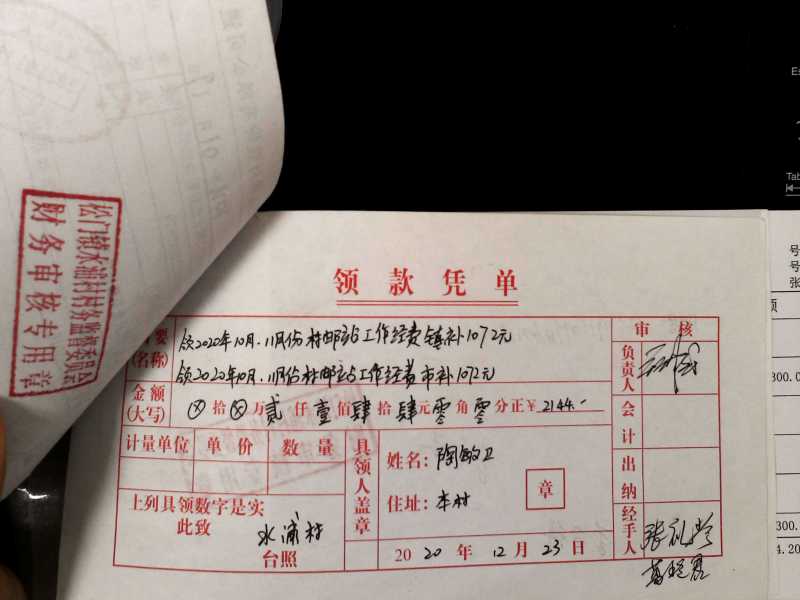 松门镇水浦村村务监督委员会
财务审核专用章
领款凭单
要
(名称)
领2020年10月、11月份村邮站工作经费镇补1072元
领2020年10月、11月份村邮站工作经费市补1072元
审核
负责人
金额
(大写)
ⓧ拾ⓧ万贰仟壹佰肆拾肆元零角零分正¥2144.-
会计
计量单位 单价 数量
具领人盖章
姓名：陶敏卫
住址：本村
章
出纳
上列具领数字是实
此致
水浦村
台照
2020年12月23日
经手人
Es
Tab
号
号
张
300.0
300.
4.20